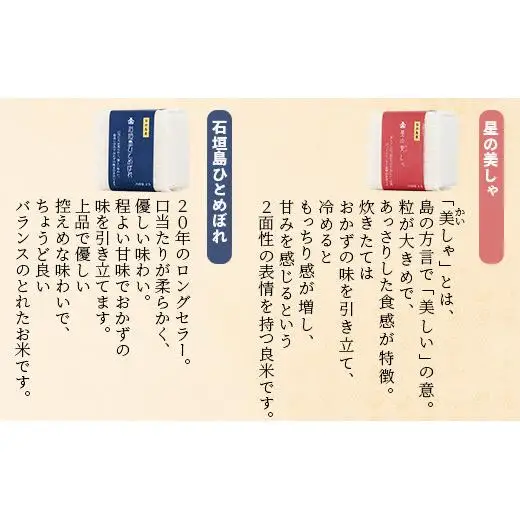 星の美しゃ
星の美しゃ
「美しゃ」とは、
かい
島の方言で「美しい」の意。
粒が大きめで、
あっさりした食感が特徴。
炊きたては
おかずの味を引き立て、
冷めると
もっちり感が増し、
甘みを感じるという
２面性の表情を持つ良米です。
石垣島ひとめぼれ
石垣島ひとめぼれ
２０年のロングセラー。
口当たりが柔らかく、
優しい味わい。
程よい甘味でおかずの
味を引き立てます。
上品で優しい
控えめな味わいで、
ちょうど良い
バランスのとれたお米です。